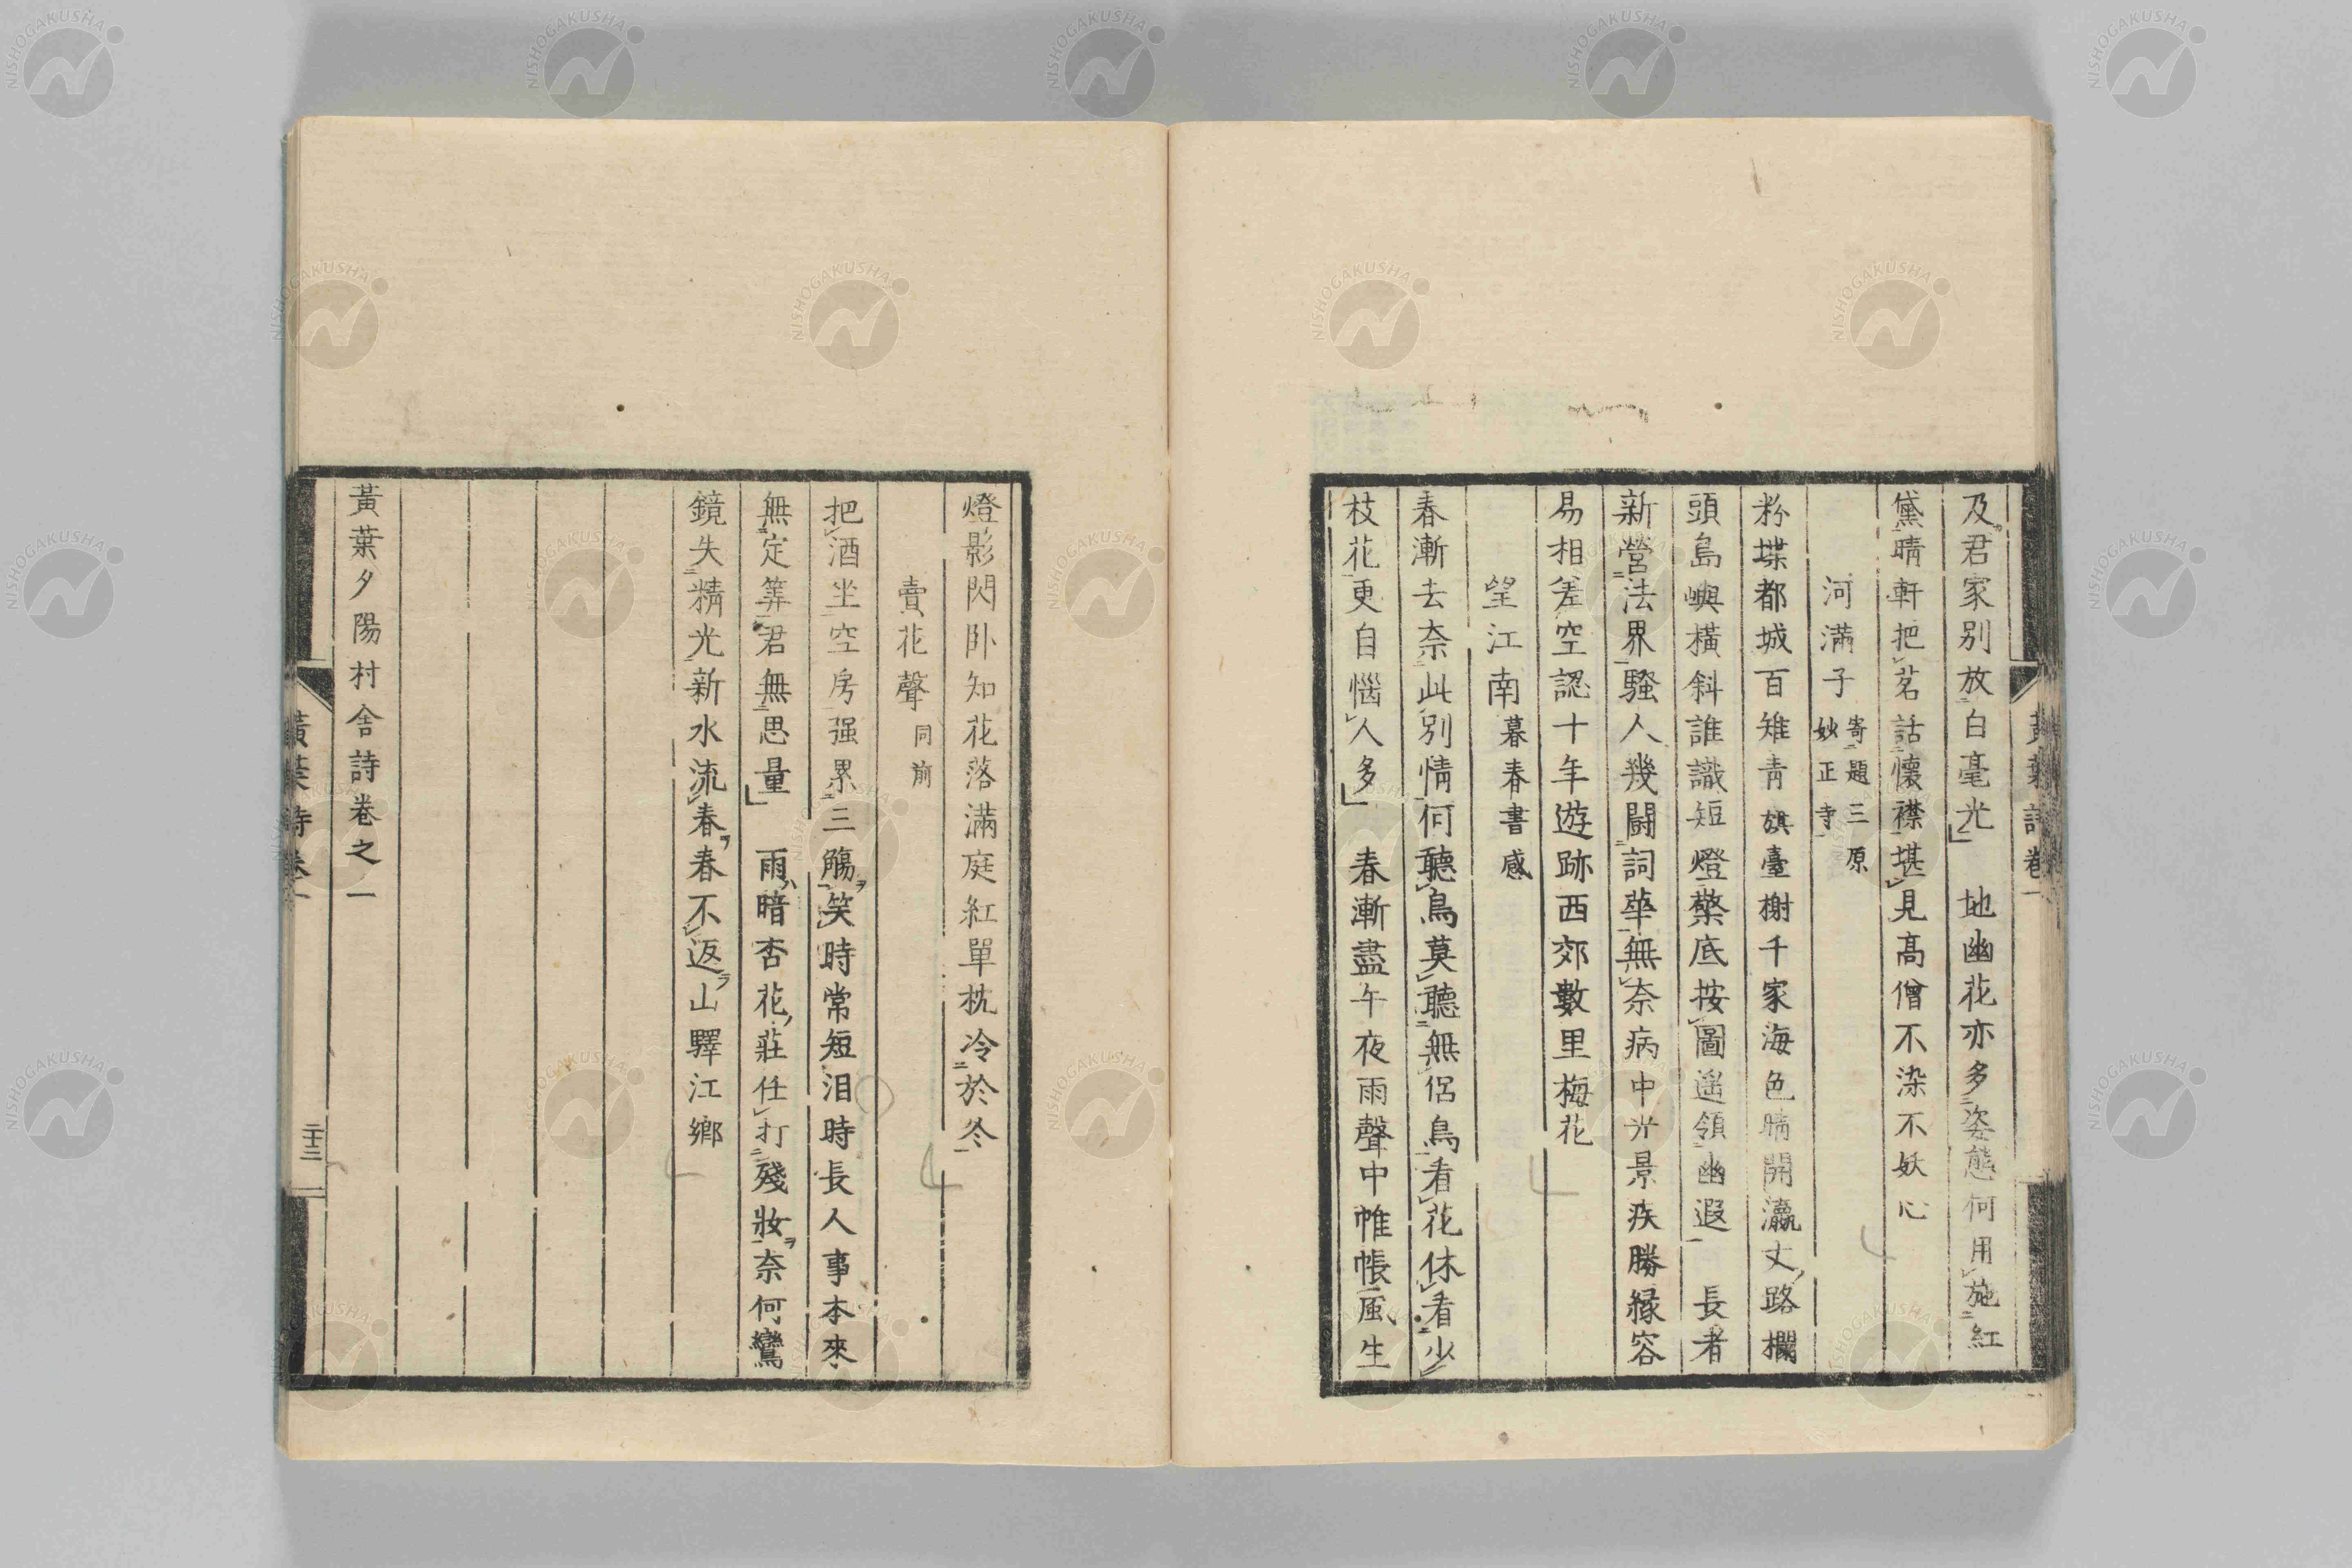 及君家別放白毫光　地幽花亦多姿態何用施紅
黛晴軒把茗話懷襟堪見高僧不染不妖心
河滿子 寄題三原妙正寺
粉堞都城百雉青旗臺榭千家海色晴開瀛丈路欄
頭島嶼橫斜誰識短燈檠底按圖遥領幽遐　長者
新營法界騷人幾鬪詞華無奈病中光景疾勝緣容
易相差空認十年遊跡西郊數里梅花
望江南 暮春書感
春漸去奈此別情何聽鳥莫聽無侶鳥看花休看少
枝花更自惱人多　春漸盡午夜雨聲中帷帳風生
燈影閃卧知花落滿庭紅單枕冷於冬
賣花聲 同前
把酒坐空房强累三觴笑時常短泪時長人事本來
無定筭君無思量　雨暗杏花莊任打殘妝奈何鸞
鏡失精光新水流春春不返山驛江鄉
黃葉夕陽村舍詩卷之一
黃葉詩卷一
二十三